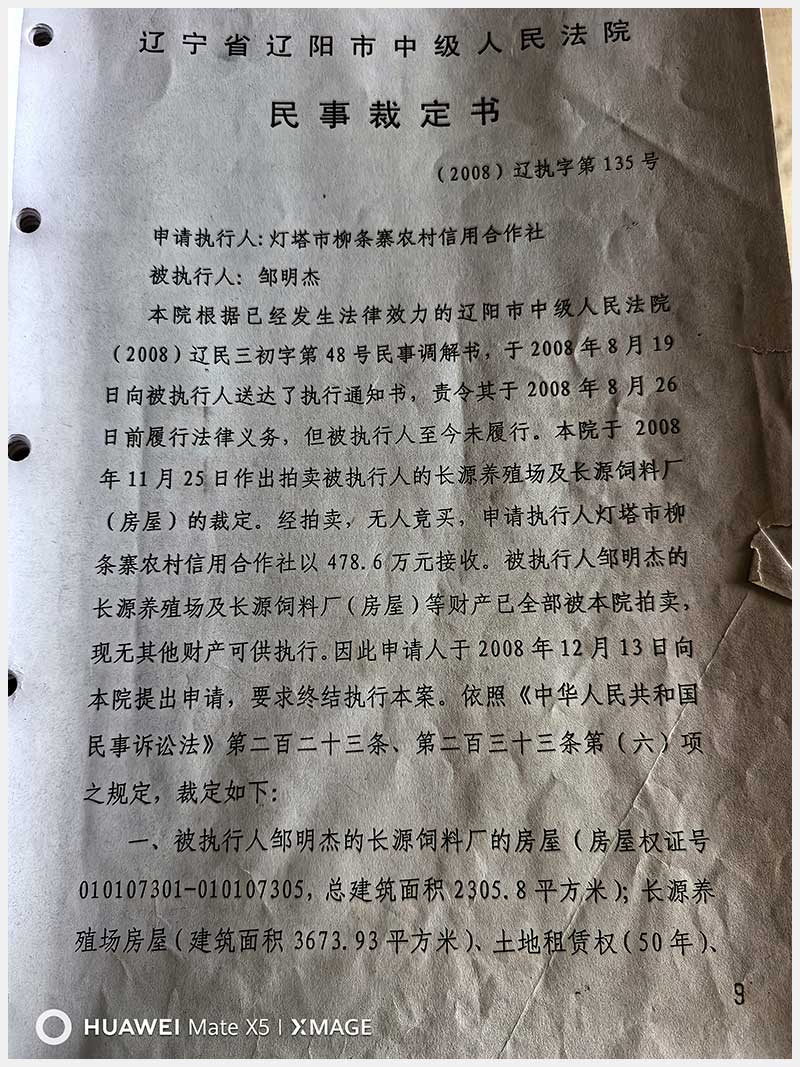 辽宁省辽阳市中级人民法院
民事裁定书
（2008）辽执字第 135 号
申请执行人：灯塔市柳条寨农村信用合作社
被执行人： 邹明杰
本院根据已经发生法律效力的辽阳市中级人民法院
（2008）辽民三初字第 48 号民事调解书，于 2008 年 8 月 19
日向被执行人送达了执行通知书，责令其于 2008 年 8 月 26
日前履行法律义务，但被执行人至今未履行。本院于 2008
年 11 月 25 日作出拍卖被执行人的长源养殖场及长源饲料厂
（房屋）的裁定。经拍卖，无人竞买，申请执行人灯塔市柳
条寨农村信用合作社以 478.6 万元接收。被执行人邹明杰的
长源养殖场及长源饲料厂（房屋）等财产已全部被本院拍卖，
现无其他财产可供执行。因此申请人于 2008 年 12 月 13 日向
本院提出申请，要求终结执行本案。依照《中华人民共和国
民事诉讼法》第二百二十三条、第二百三十三条第（六）项
之规定，裁定如下：
一、被执行人邹明杰的长源饲料厂的房屋（房屋权证号
010107301-010107305，总建筑面积 2305.8 平方米）；长源养
殖场房屋（建筑面积 3673.93 平方米）、土地租赁权（50 年）、
9
HUAWEI Mate X5 | XMAGE